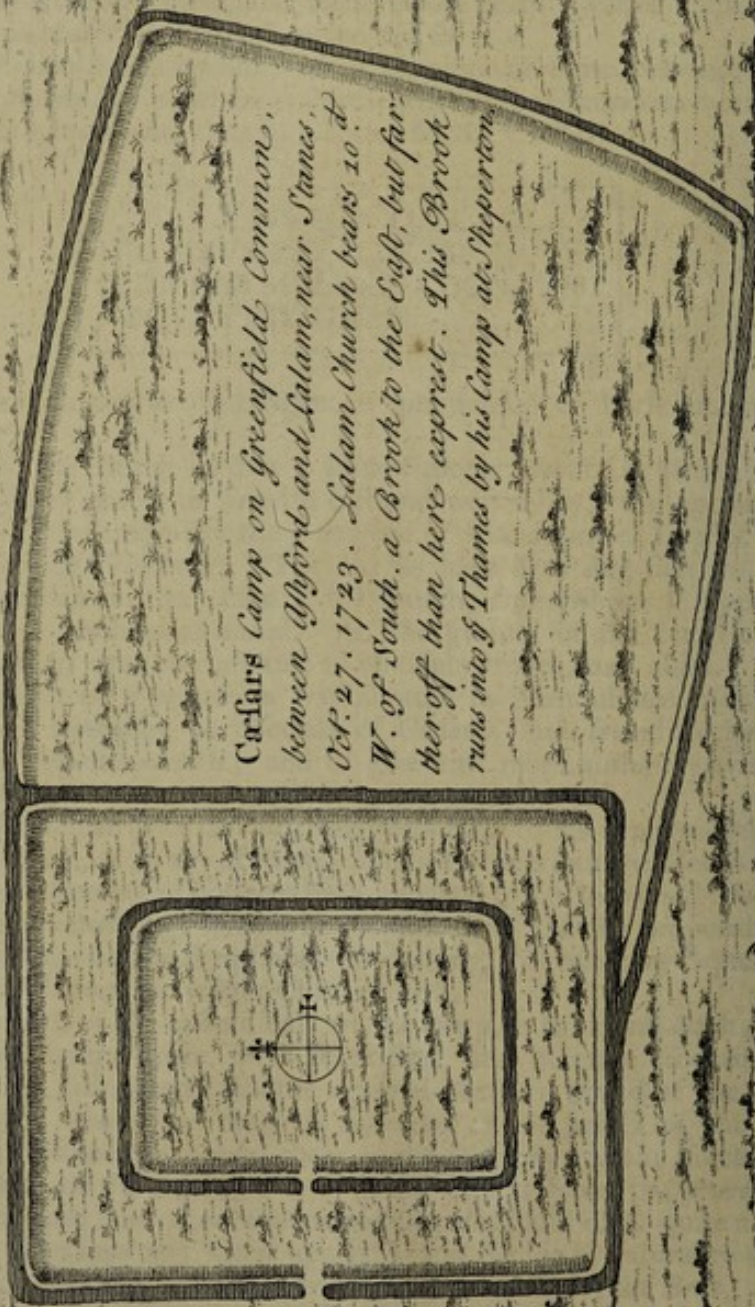 Cæsars Camp on Greenfield Common,
between Ashford and Lalam, near Stanes,
Oct.ʳ 27. 1723. Lalam Church bears 10.ᵈ
W. of South. a Brook to the East, but far-
ther off than here exprest. This Brook
runs into yͤ Thames by his Camp at Sheperton.